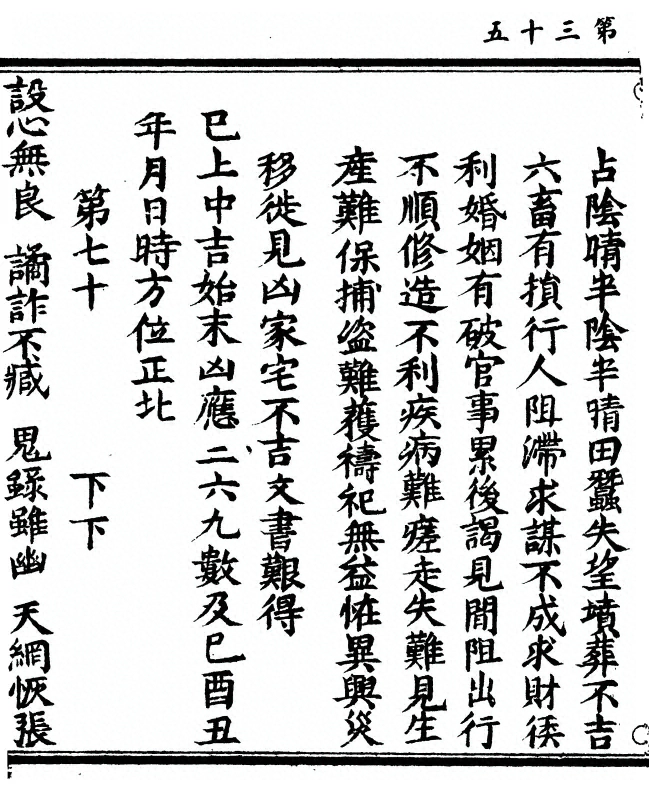 第三十五
占陰晴半陰半晴田蠶失望墳葬不吉
六畜有損行人阻滯求謀不成求財徯
利婚姻有破官事累後謁見間阻出行
不順修造不利疾病難瘥走失難見生
產難保捕盜難獲禱祀無益恠異興災
移徙見凶家宅不吉文書艱得
已上中吉始末凶應二六九數及巳酉丑
年月日時方位正北
第七十 下下
設心無良 譎詐不臧 鬼錄雖幽 天網恢張